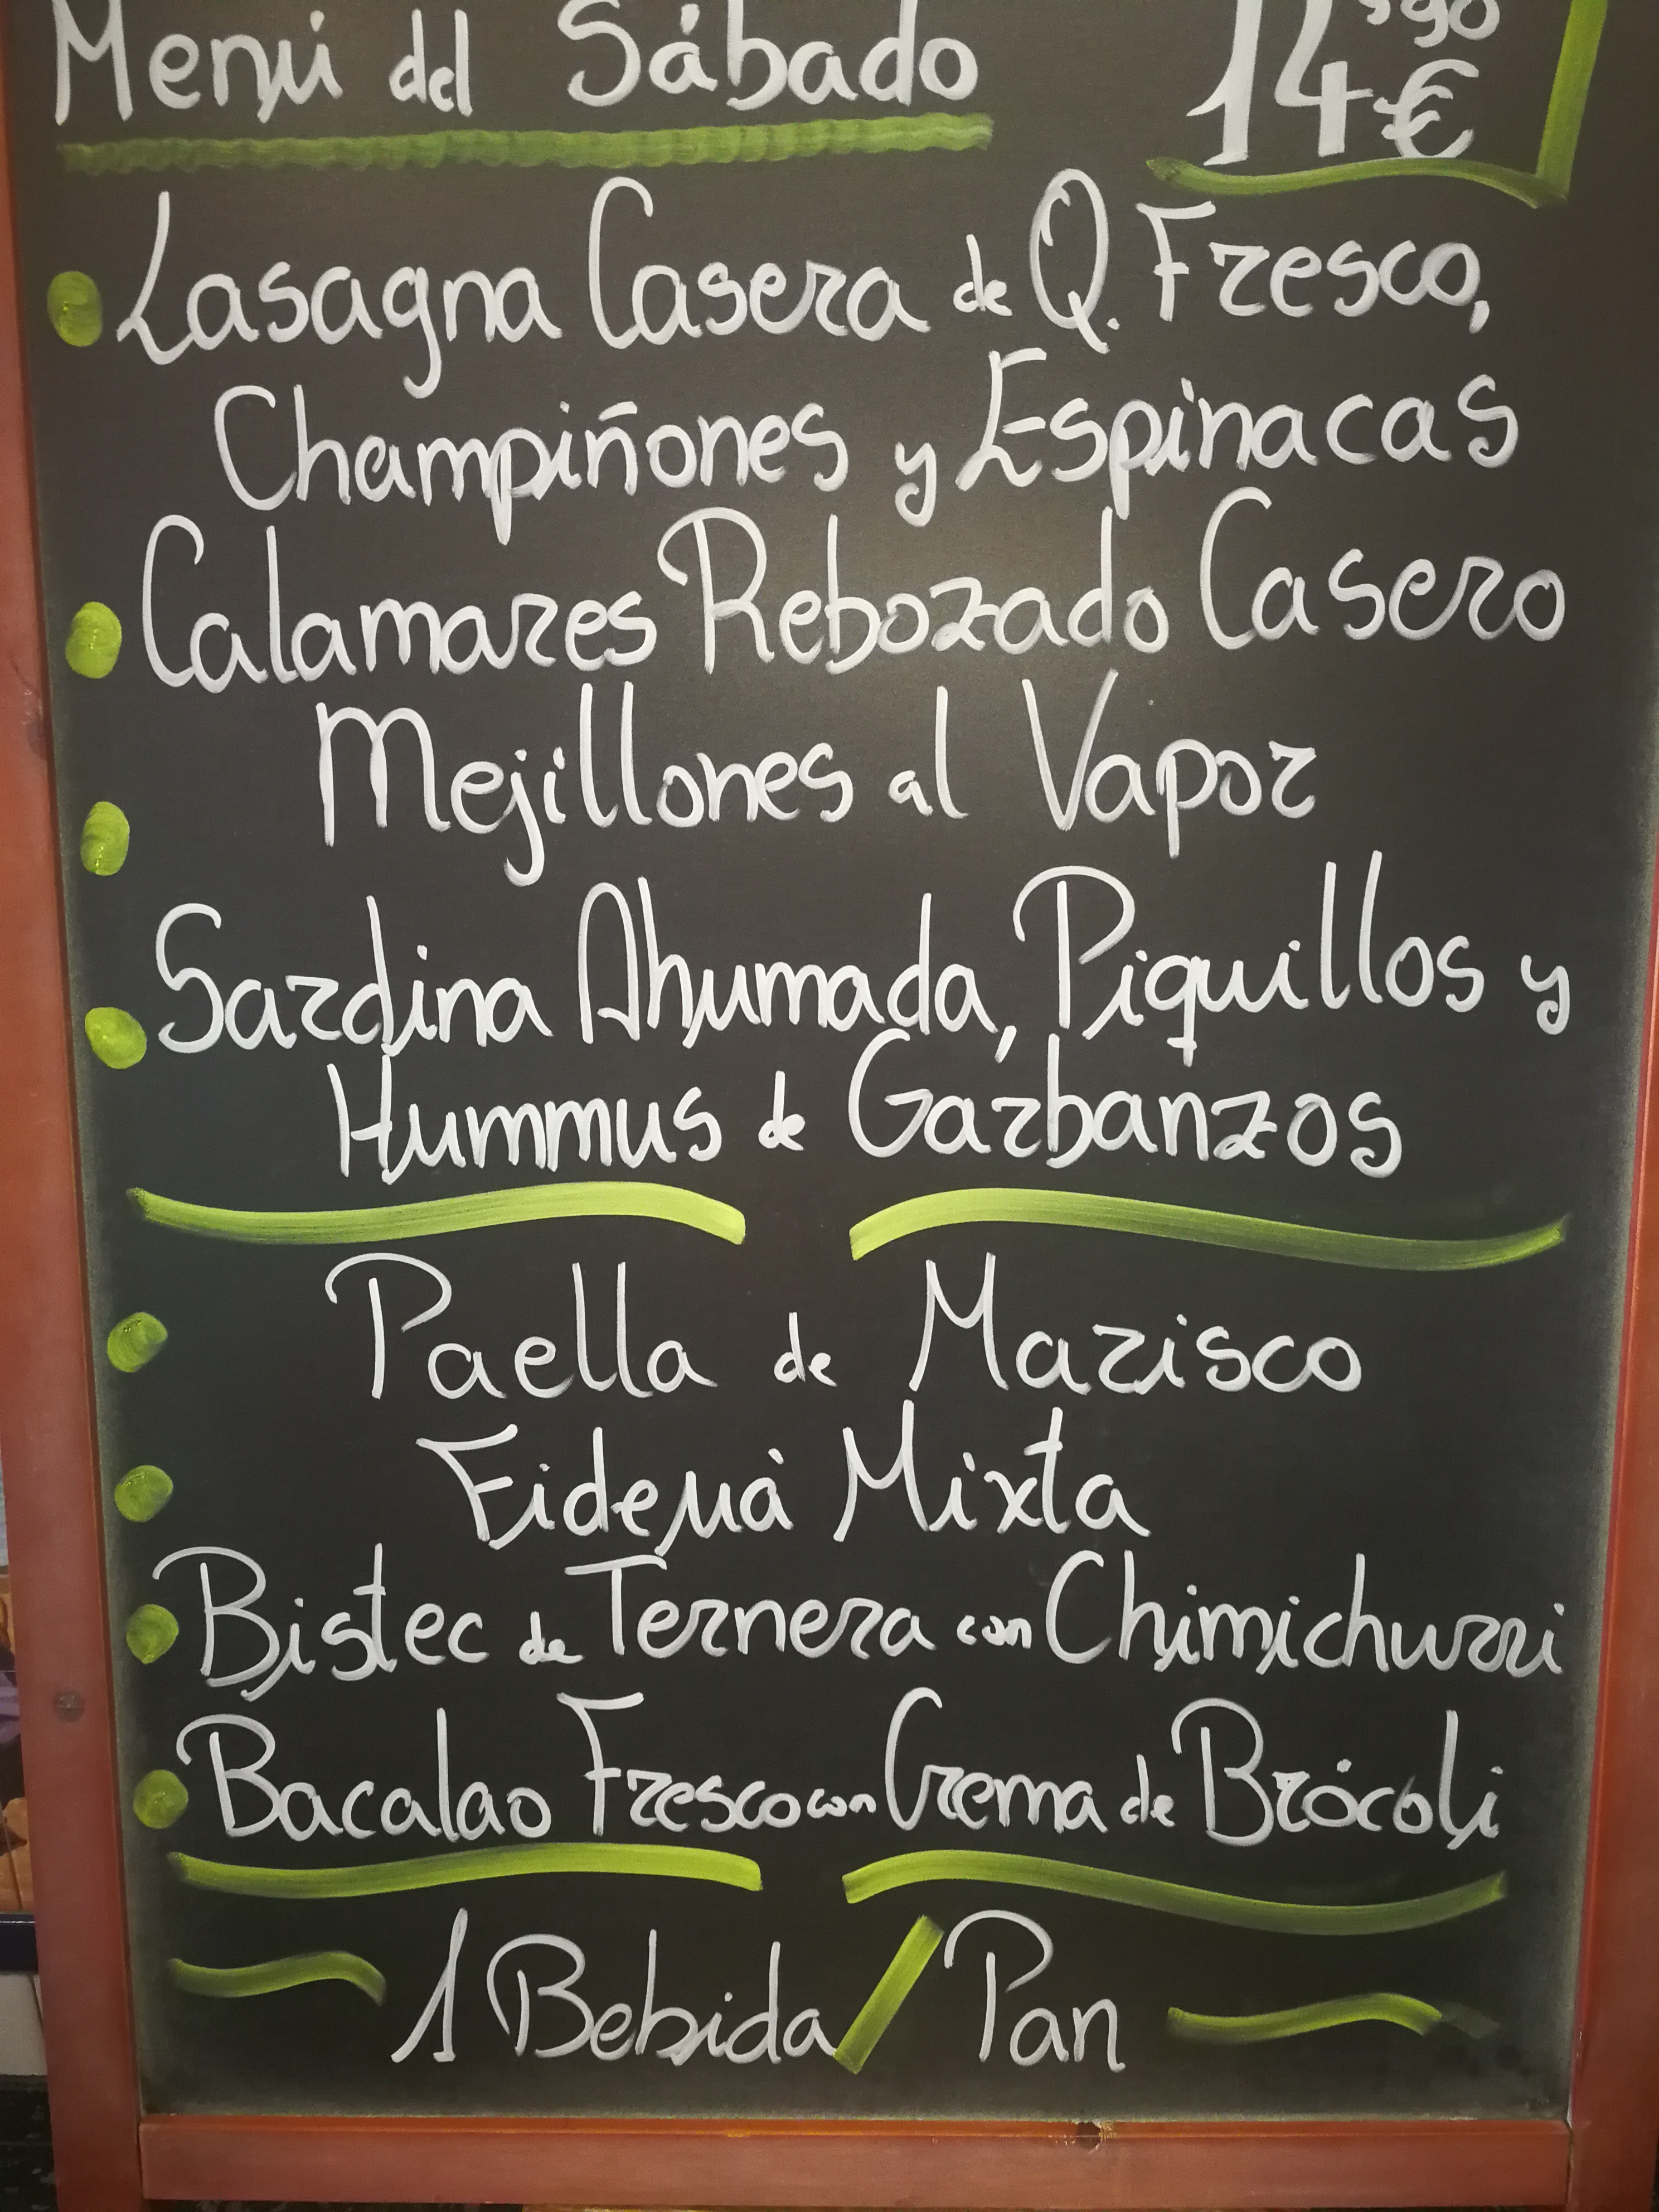 Menú del Sábado 14,90 €
Lasagna Casera de Q. Fresco,
Champiñones y Espinacas
Calamares Rebozado Casero
Mejillones al Vapor
Sardina Ahumada, Piquillos y
Hummus de Garbanzos
Paella de Marisco
Fideuà Mixta
Bistec de Ternera con Chimichurri
Bacalao Fresco con Crema de Brócoli
1 Bebida / Pan